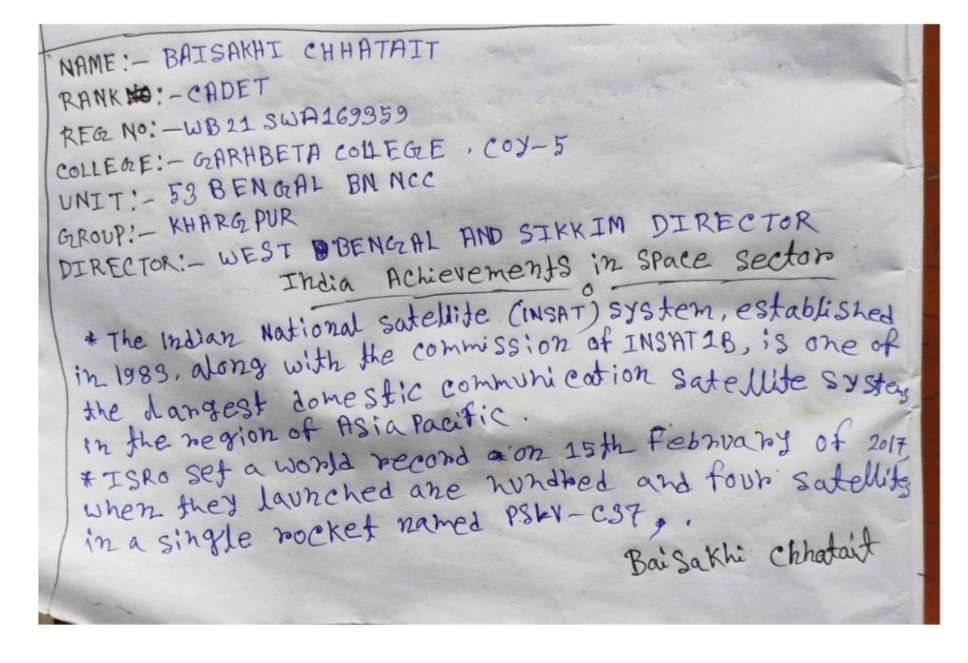 NAME:- BAISAKHI CHHATAIT
RANK :- CADET
REG NO:- WB21 SWA169359
COLLEGE:- GARHBETA COLLEGE, COY-5
UNIT:- 53 BENGAL BN NCC
GROUP:- KHARGPUR
DIRECTOR:- WEST BENGAL AND SIKKIM DIRECTOR
India Achievements in space sector
* The Indian National satellite (INSAT) system, established
in 1983, along with the commission of INSAT1B, is one of
the largest domestic communication satellite systems
in the region of Asia Pacific.
* ISRO set a world record on 15th February of 2017
when they launched one hundred and four satellites
in a single rocket named PSLV-C37,.
Baisakhi Chhatait